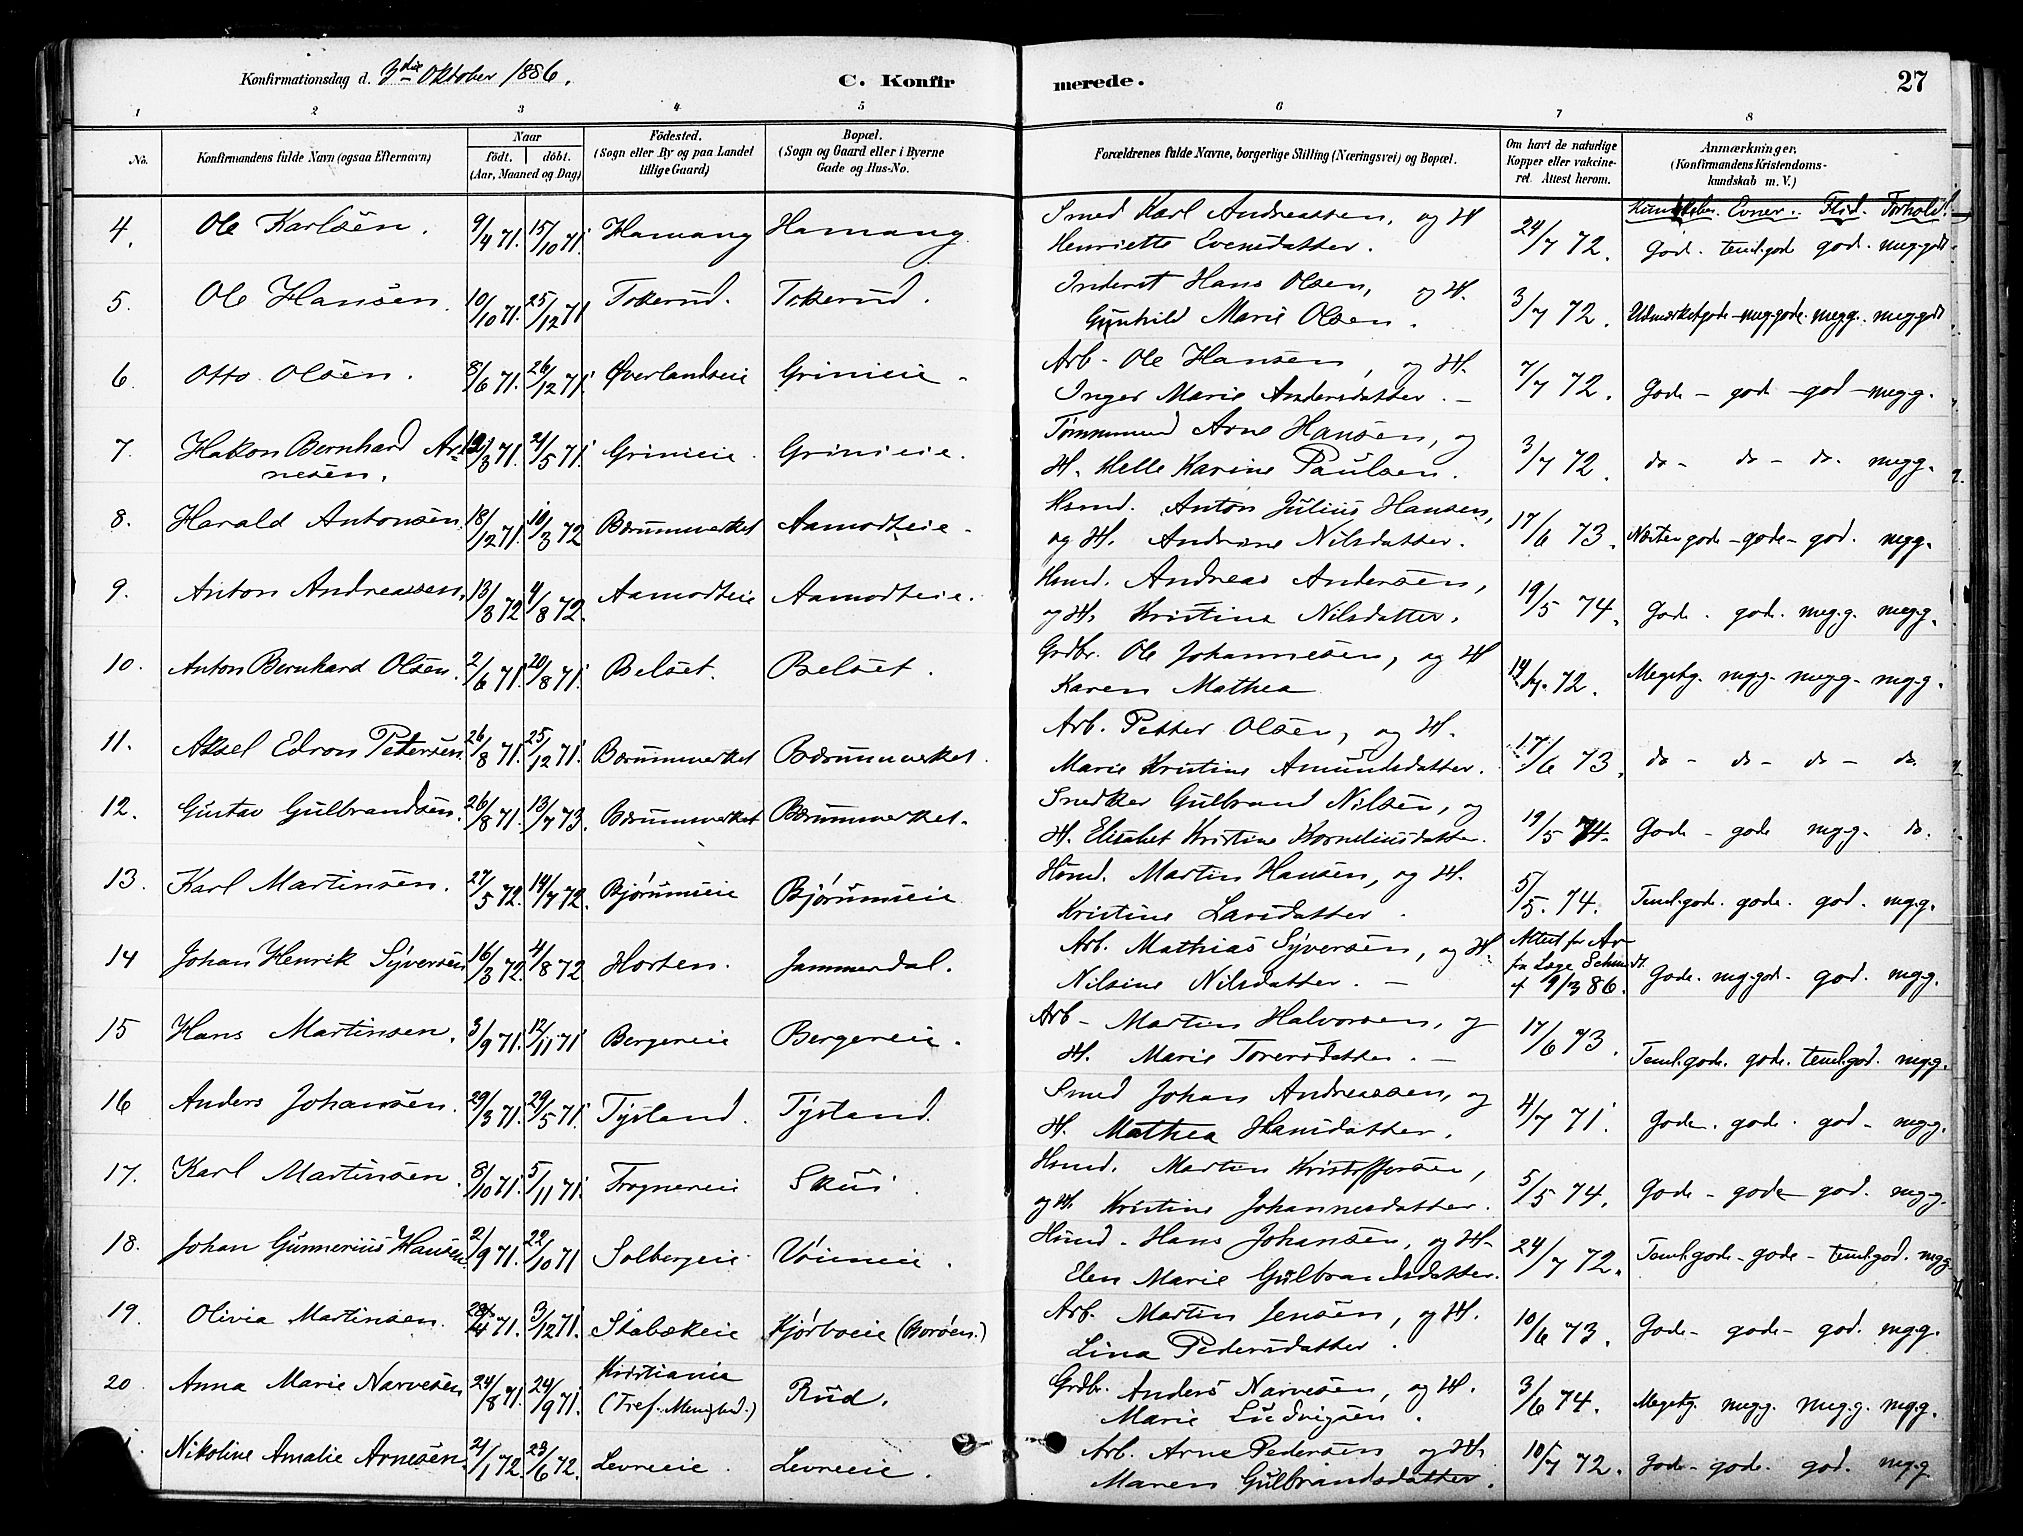 Konfirmationsdag d. 3die Oktober 1886.
C. Konfirmerede.
27
1 2 3 4 5 6 7 8
No.
Konfirmandens fulde Navn (ogsaa Efternavn)
Naar
födt. döbt.
(Aar, Maaned og Dag)
Födested.
(Sogn eller By og paa Landet
tillige Gaard)
Bopæl.
(Sogn og Gaard eller i Byerne
Gade og Hus-No.
Forældrenes fulde Navne, borgerlige Stilling (Næringsvei) og Bopæl.
Om havt de naturlige
Kopper eller vakcine-
ret. Attest herom.
Anmærkninger,
(Konfirmandens Kristendoms-
kundskab m. V.)
Kundskaber. Evner. Flid. Forhold.
4. Ole Karlsen. 9/4 71. 15/10 71. Hamang Hamang Smed Karl Andreassen, og H
Henriette Evensdatter. 24/7 72. God. teml.gode god. meg.godt
5. Ole Hansen. 10/10 71. 25/12 71 Tokerud. Tokerud. Inderst Hans Olsen, og H.
Gunhild Marie Olsen. 3/7 72. Udmærket gode - meg.gode. meg.g. meg.godt
6. Otto Olsen. 8/6 71. 26/12 71. Øverlandseie Grinieie - Arb. Ole Hansen, og H.
Inger Marie Andersdatter. - 7/7 72. Gode - gode - god - meg.g.
7. Hakon Bernhard Ar-
nesen. /3 71. 21/5 71. Grinieie. Grinieie. Tømmermand Arne Hansen, og
H. Helle Karine Paulsen. 3/7 72. do - do - do. meg.g.
8. Harald Antonsen. 18/12 71. 10/3 72 Bærumsverket Aamodteie - Hsmd. Anton Julius Hansen,
og H. Andrine Nilsdatter. 17/6 73. Næsten gode - gode - god. meg.g.
9. Anton Andreassen. 13/3 72 4/8 72. Aamodteie Aamodteie. Hsmd. Andreas Andersen,
og H. Kristine Nilsdatter. 19/5 74. Gode. gode. meg.g. meg.g.
10. Anton Bernhard Olsen. 2/6 71. 20/8 71. Belset. Belset. Grdbr. Ole Johannesen, og H
Karen Mathea 14/7. 72. Megetg. meg.g. meg.g - meg.g.
11. Aksel Edvon Petersen. 26/8 71. 25/12 71. Bærumsverket Bærumsverket. Arb. Petter Olsen, og H.
Marie Kristine Amundsdatter. 17/6 73. do - do - do - do.
12. Gustav Gulbrandsen. 26/8 71. 13/7 73. Bærumsverket Bærumsverket. Snedker Gulbrand Nilsen, og
H. Elisabet Kristine Korneliusdatter. 19/5 74. Gode - gode meg.g. do.
13. Karl Martinsen. 27/5 72. 14/7 72. Bjørumseie Bjørumseie Hsmd. Martin Hansen, og H.
Kristine Larsdatter. 5/5. 74. Teml.gode. gode. god. meg.g.
14 Johan Henrik Syversen 16/3 72. 4/8 72 Horten. Jammerdal. Arb. Mathias Syversen, og H.
Nilsine Nilsdatter. - Attest for Ar
fra Læge Schmidt
9/3 86. Gode. meg.god. god. meg.g.
15 Hans Martinsen. 3/9 71. 12/11 71 Bergereie Bergereie. Arb - Martin Halvorsen, og
H. Marie Torersdatter. - 17/6 73. Teml.gode. gode. teml.god. meg.g.
16 Anders Johansen. 29/3 71. 29/5 71. Tysland. Tysland. Smed Johan Andreassen, og
H. Mathea Hansdatter. 4/7 71. Gode. gode. god - meg.g.
17. Karl Martinsen. 8/10 71. 5/11 71. Frognereie Skui. Hsmd. Martin Kristoffersen,
og H. Kristine Johannesdatter. 5/5 74. Gode - gode - god. meg.g.
18. Johan Gunnerius Hansen 2/9 71. 22/10 71 Solbergeie. Vøieneie. Hsmd. Hans Johansen, og H -
Elen Marie Gulbrandsdatter. 24/7 72. Teml.gode - gode - teml.god. meg.g
19. Olivia Martinsen. /4 71. 3/12 71. Stabækeie Kjørboeie (Borøen.) Arb. Martin Jensen, og H.
Lina Pedersdatter. 10/6 73. Gode - gode - god. meg.g.
20 Anna Marie Narvesen 24/8 71. 24/9 71. Kristiania
(Tref. Menighed.) Rud. Grdbr. Anders Narvesen, og H.
Marie Ludvigsen. 3/6 74. Megetg. meg.g. meg.g. meg.g.
Nikoline Amalie Arnesen. 21/1 72. 23/6 72. Levreeie. Levreeie. Arb. Arne Pedersen og H.
Maren Gulbrandsdatter. 10/7 72. Gode - gode. god. meg.g